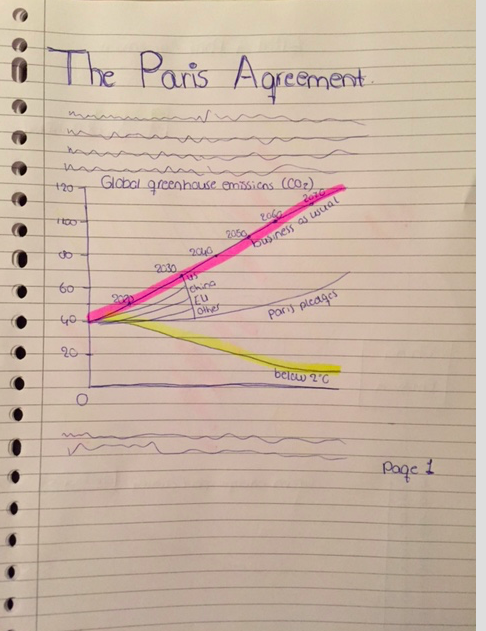 The Paris Agreement.
Global greenhouse emissions (CO₂)
120
100
80
60
40
20
0
2020
2030
2040
2050
2060
2070
business as usual
US
China
EU
other
Paris pledges
below 2°C
Page 1